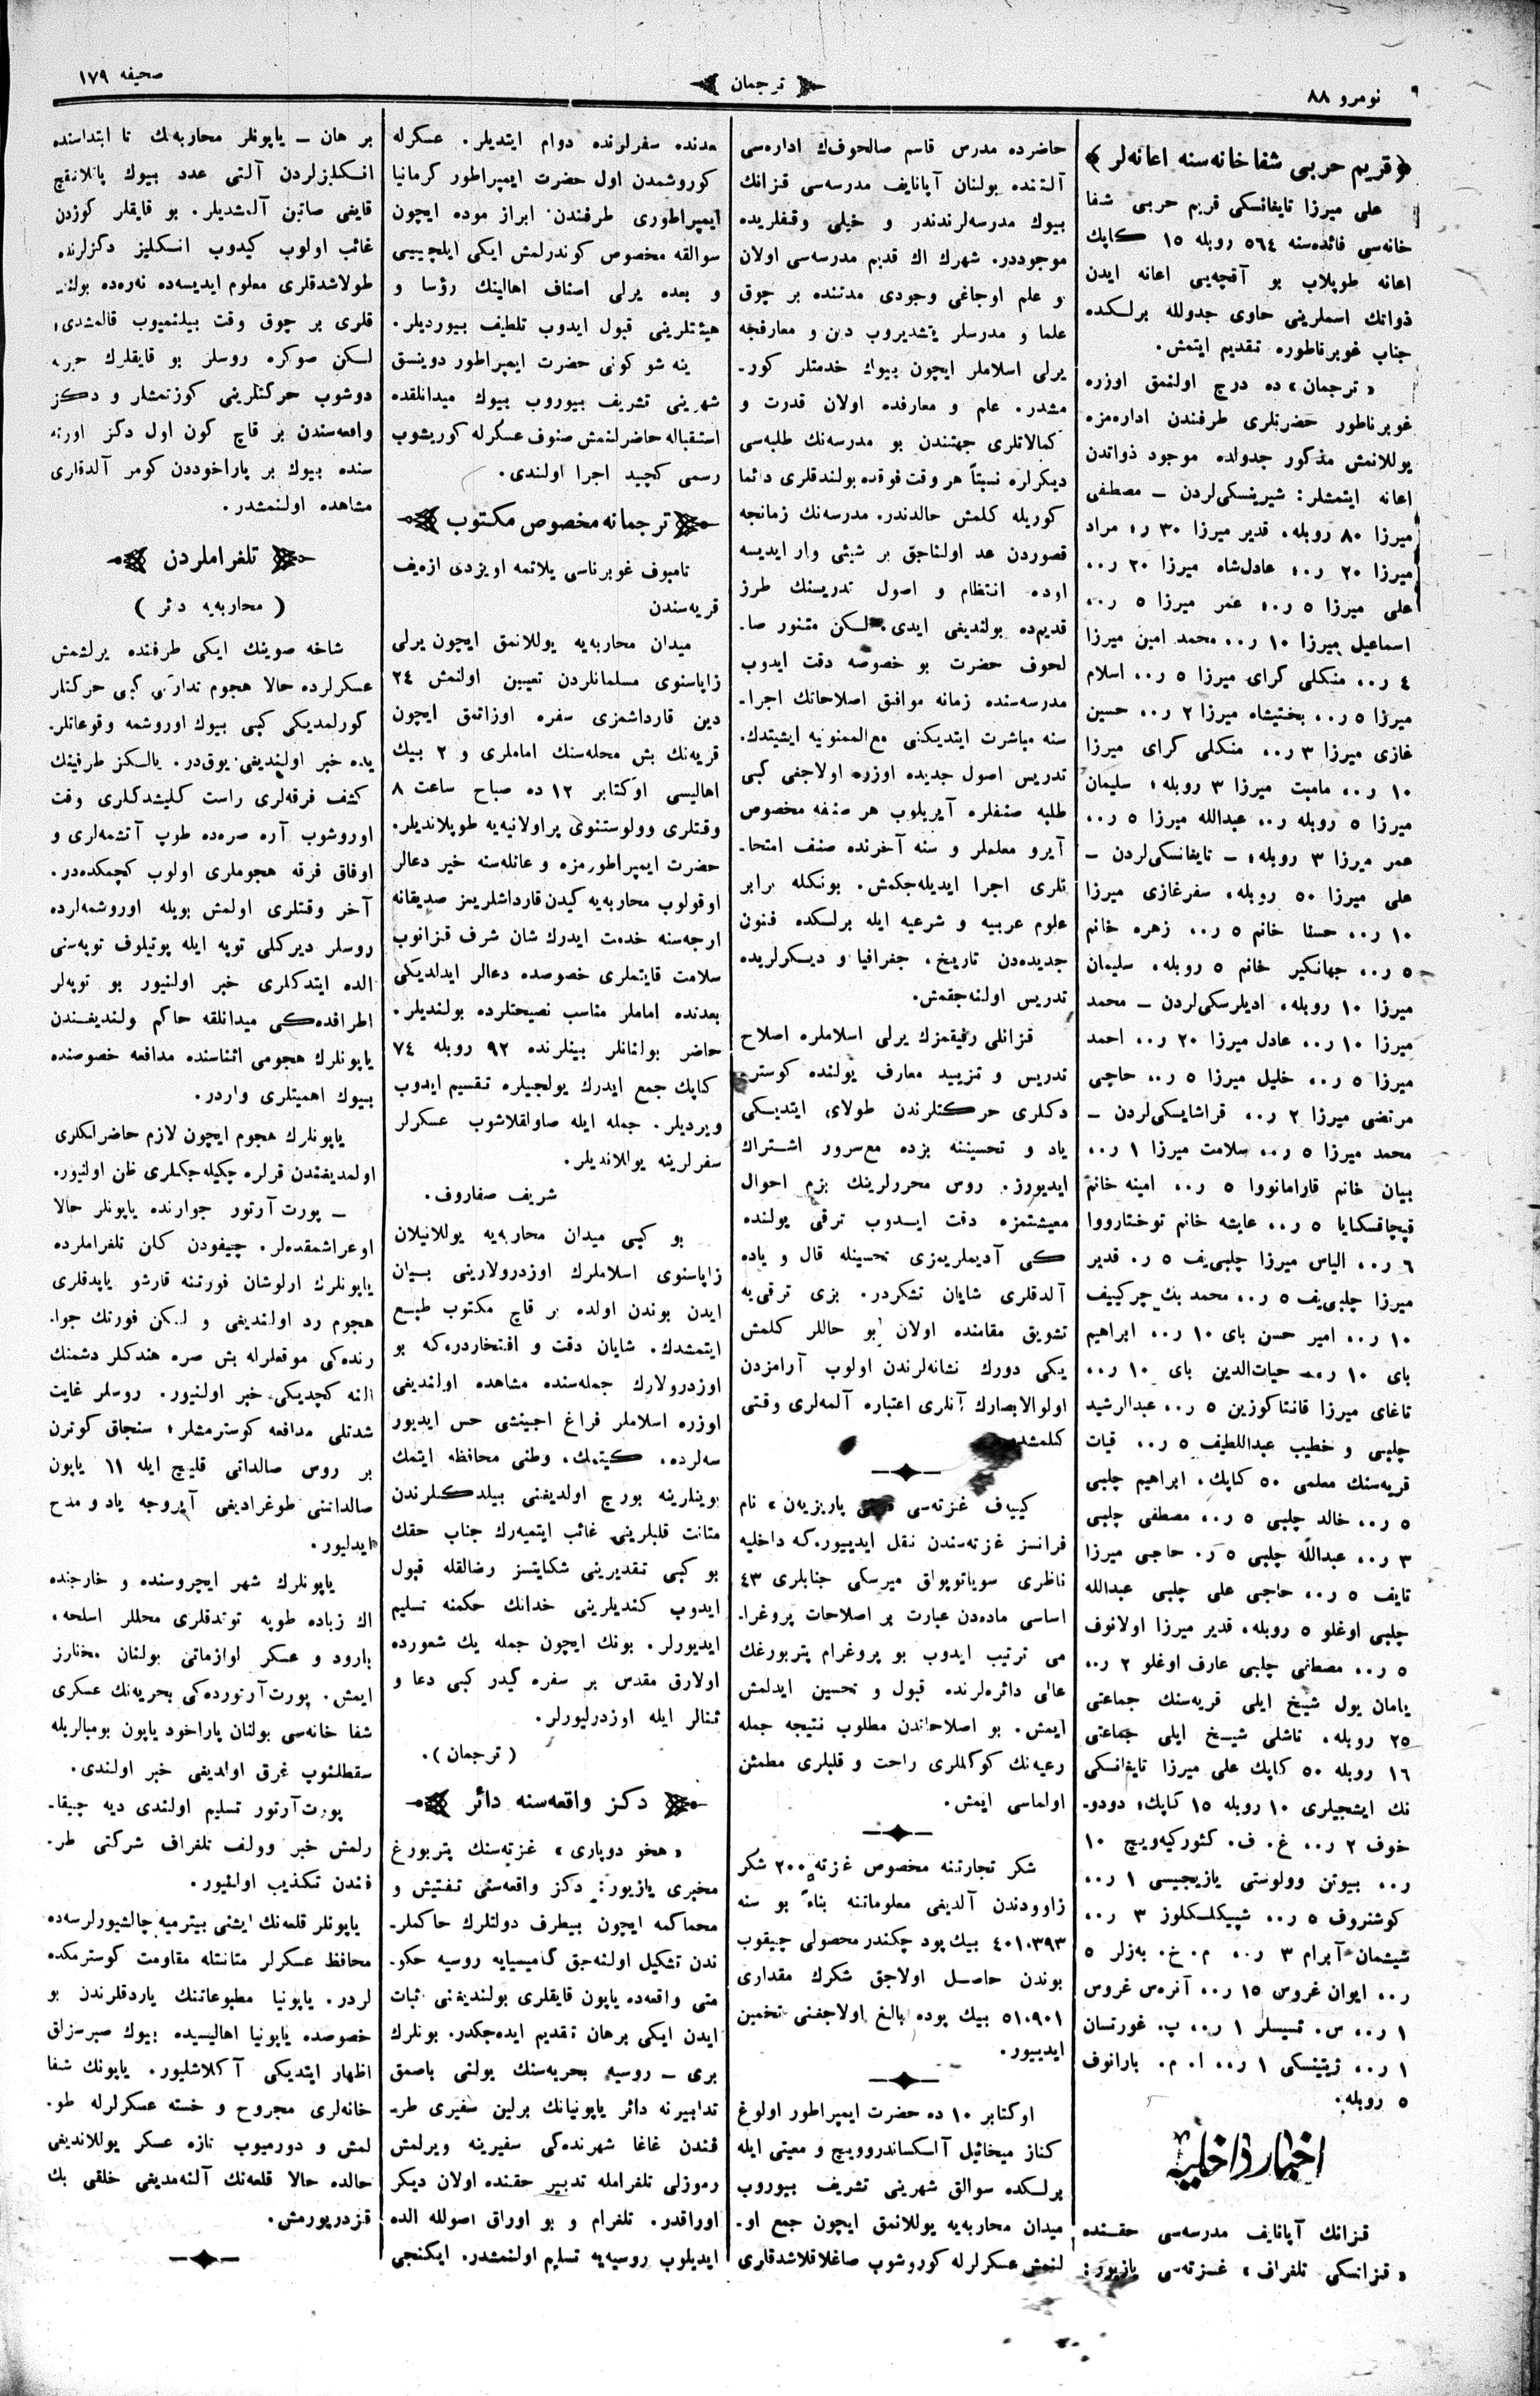 نومرو ٨٨
ترجمان
صحیفه ١٧٩
﴿قریم حربی شفاخانه‌سنه اعانه‌لر﴾
علی میرزا تایغانسكی قریم حربی شفا
خانه‌سی فائده‌سنه ٥٦٤ روبله ١٥ كاپك
اعانه طوپلاب بو آقچه‌یی اعانه ایدن
ذواتك اسملرینی حاوی جدولله برلكده
جناب غوبرناطوره تقدیم ایتمش.
« ترجمان» ده درج اولنمق اوزره
غوبرناطور حضرتلری طرفندن اداره‌مزه
یوللانمش مذكور جدولده موجود ذواتدن
اعانه ایتمشلر: شیرینسكی‌لردن – مصطفی
میرزا ٨٠ روبله، قدیر میرزا ٣٠ ر، مراد
میرزا ٢٠ ر.، عادل‌شاه میرزا ٢٠ ر.،
علی میرزا ٥ ر.، عمر میرزا ٥ ر.،
اسماعیل میرزا ١٠ ر.، محمد امین میرزا
٤ ر.، منكلی كرای میرزا ٥ ر.، اسلام
میرزا ٥ ر.، بختیشاه میرزا ٢ ر.، حسین
غازی میرزا ٣ ر.، منكلی كرای میرزا
١٠ ر.، مامبت میرزا ٣ روبله، سلیمان
میرزا ٥ روبله ر.، عبدالله میرزا ٥ ر.،
عمر میرزا ٣ روبله؛ – تایغانسكی‌لردن –
علی میرزا ٥٠ روبله، سفرغازی میرزا
١٠ ر.، حسنا خانم ٥ ر.، زهره خانم
٥ ر.، جهانكیر خانم ٥ روبله، سلیمان
میرزا ١٠ روبله، ادیلرسكی‌لردن – محمد
میرزا ١٠ ر.، عادل میرزا ٢٠ ر.، احمد
میرزا ٥ ر.، خلیل میرزا ٥ ر.، حاجی
مرتضی میرزا ٢ ر.، قراشایسكی‌لردن –
محمد میرزا ٥ ر.، سلامت میرزا ١ ر.،
بیان خانم قارامانووا ٥ ر.، امینه خانم
قپچاقسكایا ٥ ر.، عایشه خانم توختارووا
٦ ر.، الیاس میرزا چلبی‌یف ٥ ر. قدیر
میرزا چلبی‌یف ٥ ر.، محمد بك چركییف
١٠ ر.، امیر حسن بای ١٠ ر.، ابراهیم
بای ١٠ ر.، حیات‌الدین بای ١٠ ر.،
تاغای میرزا قانتاكوزین ٥ ر.، عبدالرشید
چلبی و خطیب عبداللطیف ٥ ر.، قیات
قریه‌سنك معلمی ٥٠ كاپك، ابراهیم چلبی
٥ ر.، خالد چلبی ٥ ر.، مصطفی چلبی
٣ ر.، عبدالله چلبی ٥ ر. حاجی میرزا
تایف ٥ ر.، حاجی علی چلبی عبدالله
چلبی اوغلو ٥ روبله، قدیر میرزا اولانوف
٥ ر.، مصطفی چلبی عارف اوغلو ٢ ر.،
یامان یول شیخ ایلی قریه‌سنك جماعتی
٢٥ روبله، تاشلی شیخ ایلی جماعتی
١٦ روبله ٥٠ كاپك علی میرزا تایغانسكی
نك ایشجیلری ١٠ روبله ١٥ كاپك؛ دودو-
خوف ٢ ر.، غ. ف. كئوركیه‌ویچ ١٠
ر.، بیوتن وولوستی یازیجیسی ١ ر.،
كوشنروف ٥ ر.، شپیكلسكلوز ٣ ر.،
شیشمان آبرام ٣ ر.، م. خ. به‌زلر ٥
ر.، ایوان غروس ١٥ ر.، آندره‌س غروس
١ ر.، س. تسیسلر ١ ر.، پ. غورتسان
١ ر.، زیتینسكی ١ ر.، ا. م. بارانوف
٥ روبله.
اخبار داخلیه
قزانك آپانایف مدرسه‌سی حقنده
« قزانسكی تلغراف» غزته‌سی یازیور:
حاضرده مدرس قاسم صالحوف‌ك اداره‌سی
آلتنده بولنان آپانایف مدرسه‌سی قزانك
بیوك مدرسه‌لرندندر و خیلی وقفلریده
موجوددر. شهرك اك قدیم مدرسه‌سی اولان
و علم اوجاغی وجودی مدتنده بر چوق
علما و مدرسلر یتشدیروب دین و معارفجه
یرلی اسلاملر ایچون بیوك خدمتلر كور-
مشدر. علم و معارفده اولان قدرت و
كمالاتلری جهتندن بو مدرسه‌نك طلبه‌سی
دیكرلره نسبتاً هر وقت فوقده بولندقلری دائما
كوریله كلمش حالدندر. مدرسه‌نك زمانجه
قصوردن عد اولناجق بر شیئی وار ایدیسه
اوده انتظام و اصول تدریسنك طرز
قدیمده بولندیغی ایدی. لكن متنور صا-
لحوف حضرت بو خصوصه دقت ایدوب
مدرسه‌سنده زمانه موافق اصلاحاتك اجرا-
سنه مباشرت ایتدیكنی مع‌الممنونیه ایشیتدك.
تدریس اصول جدیده اوزره اولاجغی كبی
طلبه صنفلره آیریلوب هر صنفه مخصوص
آیرو معلملر و سنه آخرنده صنف امتحا-
نلری اجرا ایدیله‌جكمش. بونكله برابر
علوم عربیه و شرعیه ایله برلكده فنون
جدیده‌دن تاریخ، جغرافیا و دیكرلریده
تدریس اولنه‌جقمش.
قزانلی رفیقمزك یرلی اسلاملره اصلاح
تدریس و تزیید معارف یولنده كوستر-
دكلری حركتلرندن طولای ایتدیكی
یاد و تحسیننه بزده مع‌سرور اشتراك
ایدیورز. روس محررلرینك بزم احوال
معیشتمزه دقت ایدوب ترقی یولنده
كی آدیملریمزی تحسینله قال و یاده
آلدقلری شایان تشكردر. بزی ترقی‌یه
تشویق مقامنده اولان بو حاللر كلمش
یكی دورك نشانه‌لرندن اولوب آرامزدن
اولوالابصارك آنلری اعتباره آلمه‌لری وقتی
كلمشدر.
كییه‌ف غزته‌سی پاریزیه‌ن» نام
فرانسز غزته‌سندن نقل ایدییور.كه داخلیه
ناظری سویاتوپولق میرسكی جنابلری ٤٣
اساسی ماده‌دن عبارت بر اصلاحات پروغرا-
می ترتیب ایدوب بو پروغرام پتربورغك
عالی دائره‌لرنده قبول و تحسین ایدلمش
ایمش. بو اصلاحاتدن مطلوب نتیجه جمله
رعیه‌نك كوكللری راحت و قلبلری مطمئن
اولماسی ایمش.
شكر تجارتنه مخصوص غزته ٢٠٠ شكر
زاوودندن آلدیغی معلوماتنه بناءً بو سنه
٤٠١٠٣٩٣ بیك پود چكندر محصولی چیقوب
بوندن حاصل اولاجق شكرك مقداری
٥١٠٩٠١ بیك پوده بالغ اولاجغنی تخمین
ایدییور.
اوكتابر ١٠ ده حضرت ایمپراطور اولوغ
كناز میخائیل آلكساندروویچ و معیتی ایله
برلكده سوالق شهرینی تشریف بیوروب
میدان محاربه‌یه یوللانمق ایچون جمع او-
لنمش عسكرلرله كوروشوب صاغلاقلاشدقلری
بعدنده سفرلرنده دوام ایتدیلر. عسكرله
كوروشمدن اول حضرت ایمپراطور كرمانیا
ایمپراطوری طرفندن ابراز موده ایچون
سوالقه مخصوص كوندرلمش ایكی ایلچییی
و بعده یرلی اصناف اهالینك رؤسا و
هیئتلرینی قبول ایدوب تلطیف بیوردیلر.
ینه شو كونی حضرت ایمپراطور دوینسق
شهرینی تشریف بیوروب بیوك میدانلقده
استقباله حاضرلنمش صنوف عسكرله كوریشوب
رسمی كچید اجرا اولندی.
ترجمانه مخصوص مكتوب
تامبوف غوبرناسی یلاتمه اویزدی ازه‌یف
قریه‌سندن
میدان محاربه‌یه یوللانمق ایچون یرلی
زاپاسنوی مسلمانلردن تعیین اولنمش ٢٤
دین قارداشمزی سفره اوزاتمق ایچون
قریه‌نك بش محله‌سنك اماملری و ٢ بیك
اهالیسی اوكتابر ١٢ ده صباح ساعت ٨
وقتلری وولوستنوی پراولانیه‌یه طوپلاندیلر.
حضرت ایمپراطورمزه و عائله‌سنه خیر دعالر
اوقولوب محاربه‌یه كیدن قارداشلریمز صدیقانه
ارجه‌سنه خدمت ایدرك شان شرف قزانوب
سلامت قایتملری خصوصده دعالر ایدلدیكی
بعدنده اماملر مناسب نصیحتلرده بولندیلر.
حاضر بولنانلر بینلرنده ٩٢ روبله ٧٤
كاپك جمع ایدرك یولجیلره تقسیم ایدوب
ویردیلر. جمله ایله صاواقلاشوب عسكرلر
سفرلرینه یوللاندیلر.
شریف صفاروف.
بو كبی میدان محاربه‌یه یوللانیلان
زاپاسنوی اسلاملرك اوزدرولارینی بیان
ایدن بوندن اولده بر قاچ مكتوب طبع
ایتمشدك. شایان دقت و افتخاردر.كه بو
اوزدرولارك جمله‌سنده مشاهده اولندیغی
اوزره اسلاملر فراغ اجینشی حس ایدیور
سه‌لرده، كیتمك، وطنی محافظه ایتمك
بوینلرینه بورج اولدیغنی بیلدكلرندن
متانت قلبلرینی غائب ایتمیه‌رك جناب حقك
بو كبی تقدیرینی شكایتسز رضالقله قبول
ایدوب كندیلرینی خدانك حكمنه تسلیم
ایدیورلر. بونك ایچون جمله یك شعورده
اولارق مقدس بر سفره كیدر كبی دعا و
ثنالر ایله اوزدرلیورلر.
( ترجمان ).
دكز واقعه‌سنه دائر
« هخو دوپاری» غزته‌سنك پتربورغ
مخبری یازیور: دكز واقعه‌سنی تفتیش و
محاكمه ایچون بیطرف دولتلرك حاكملر-
ندن تشكیل اولنه‌جق كامیسیایه روسیه حكو-
متی واقعه‌ده یاپون قایقلری بولندیغنی ثبات
ایدن ایكی برهان تقدیم ایده‌جكدر. بونلرك
بری – روسیه بحریه‌سنك یولنی باصمق
تدابیرنه دائر یاپونیانك برلین سفیری طر-
فندن غاغا شهرنده‌كی سفیرینه ویرلمش
رموزلی تلغرامله تدبیر حقنده اولان دیكر
اوراقدر. تلغرام و بو اوراق اصولله الده
ایدیلوب روسیه‌یه تسلیم اولنمشدر. ایكنجی
بر هان – یاپونلر محاربه‌نك تا ابتداسنده
انكلیزلردن آلتی عدد بیوك پانلانقیچ
قایغی صاتین آلمشدیلر. بو قایقلر كوزدن
غائب اولوب كیدوب انكلیز دكزلرنده
طولاشدقلری معلوم ایدیسه‌ده نه‌ره‌ده بولند-
قلری بر چوق وقت بیلنمیوب قالمشدی؛
لكن صوكره روسلر بو قایقلرك حربه
دوشوب حركتلرینی كوزتمشلر و دكز
واقعه‌سندن بر قاچ كون اول دكز اورته
سنده بیوك بر پاراخوددن كومر آلدقلری
مشاهده اولنمشدر.
تلغراملردن
( محاربه‌یه دئر )
شاخه صوینك ایكی طرفنده یرلشمش
عسكرلرده حالا هجوم تداركی كبی حركتلر
كورلمدیكی كبی بیوك اوروشمه وقوعاتلر-
یده خبر اولندیغی یوق‌در. یالكز طرفینك
كشف فرقه‌لری راست كلیشدكلری وقت
اوروشوب آره صره‌ده طوپ آتشمه‌لری و
اوفاق فرقه هجوملری اولوب كچمكده‌در.
آخر وقتلری اولمش بویله اوروشمه‌لرده
روسلر دیركلی توپه ایله پوتیلوف توپه‌سنی
الده ایتدكلری خبر اولنیور بو توپه‌لر
اطرافده‌كی میدانلقه حاكم ولندیغندن
یاپونلرك هجومی اثناسنده مدافعه خصوصنده
بیوك اهمیتلری واردر.
یاپونلرك هجوم ایچون لازم حاضرلكلری
اولمدیغندن قرلره چكیله‌جكلری ظن اولنیور.
– پورت آرتور جوارنده یاپونلر حالا
اوغراشمقده‌لر. چیفودن كلن تلغراملرده
یاپونلرك ارلوشان فورتنه قارشو یاپدقلری
هجوم رد اولندیغی و لكن فورتك جوا-
رنده‌كی موقعلرله بش صره هندكلر دشمنك
النه كچدیكی خبر اولنیور. روسلر غایت
شدتلی مدافعه كوسترمشلر؛ سنجاق كوترن
بر روس صالداتی قلیچ ایله ١١ یاپون
صالداتنی طوغرادیغی آیروجه یاد و مدح
ایدلیور.
یاپونلرك شهر ایچروسنده و خارجنده
اك زیاده طوپه توتدقلری محللر اسلحه،
بارود و عسكر لوازماتی بولنان مخنارز
ایمش. پورت آرتورده‌كی بحریه‌نك عسكری
شفا خانه‌سی بولنان پاراخود یاپون بومبالریله
سقطلنوب غرق اولدیغی خبر اولندی.
پورت آرتور تسلیم اولندی دیه چیقا-
رلمش خبر وولف تلغراف شركتی طر-
فندن تكذیب اولنیور.
یاپونلر قلعه‌نك ایشنی بیترمیه چالشیورلرسه‌ده
محافظ عسكرلر متانتله مقاومت كوسترمكده
لردر. یاپونیا مطبوعاتنك یاردقلرندن بو
خصوصده یاپونیا اهالیسیده بیوك صبرسزلق
اظهار ایتدیكی آكلاشلیور. یاپونك شفا
خانه‌لری مجروح و خسته عسكرلرله طو-
لمش و دورمیوب تازه عسكر یوللاندیغی
حالده حالا قلعه‌نك آلنه‌مدیغی خلقی بك
قزدریورمش.